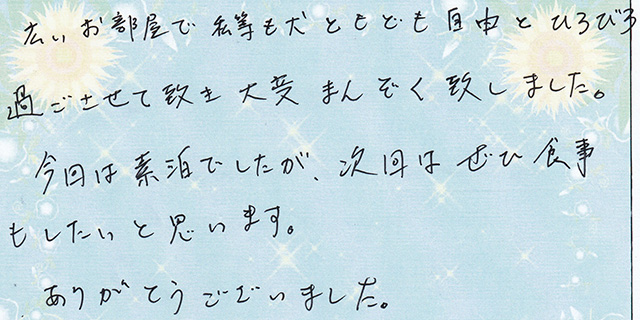 広いお部屋で私等も犬ともども自由とひろびろ
過ごさせて致き大変まんぞく致しました。
今回は素泊でしたが、次回はぜひ食事
もしたいと思います。
ありがとうございました。